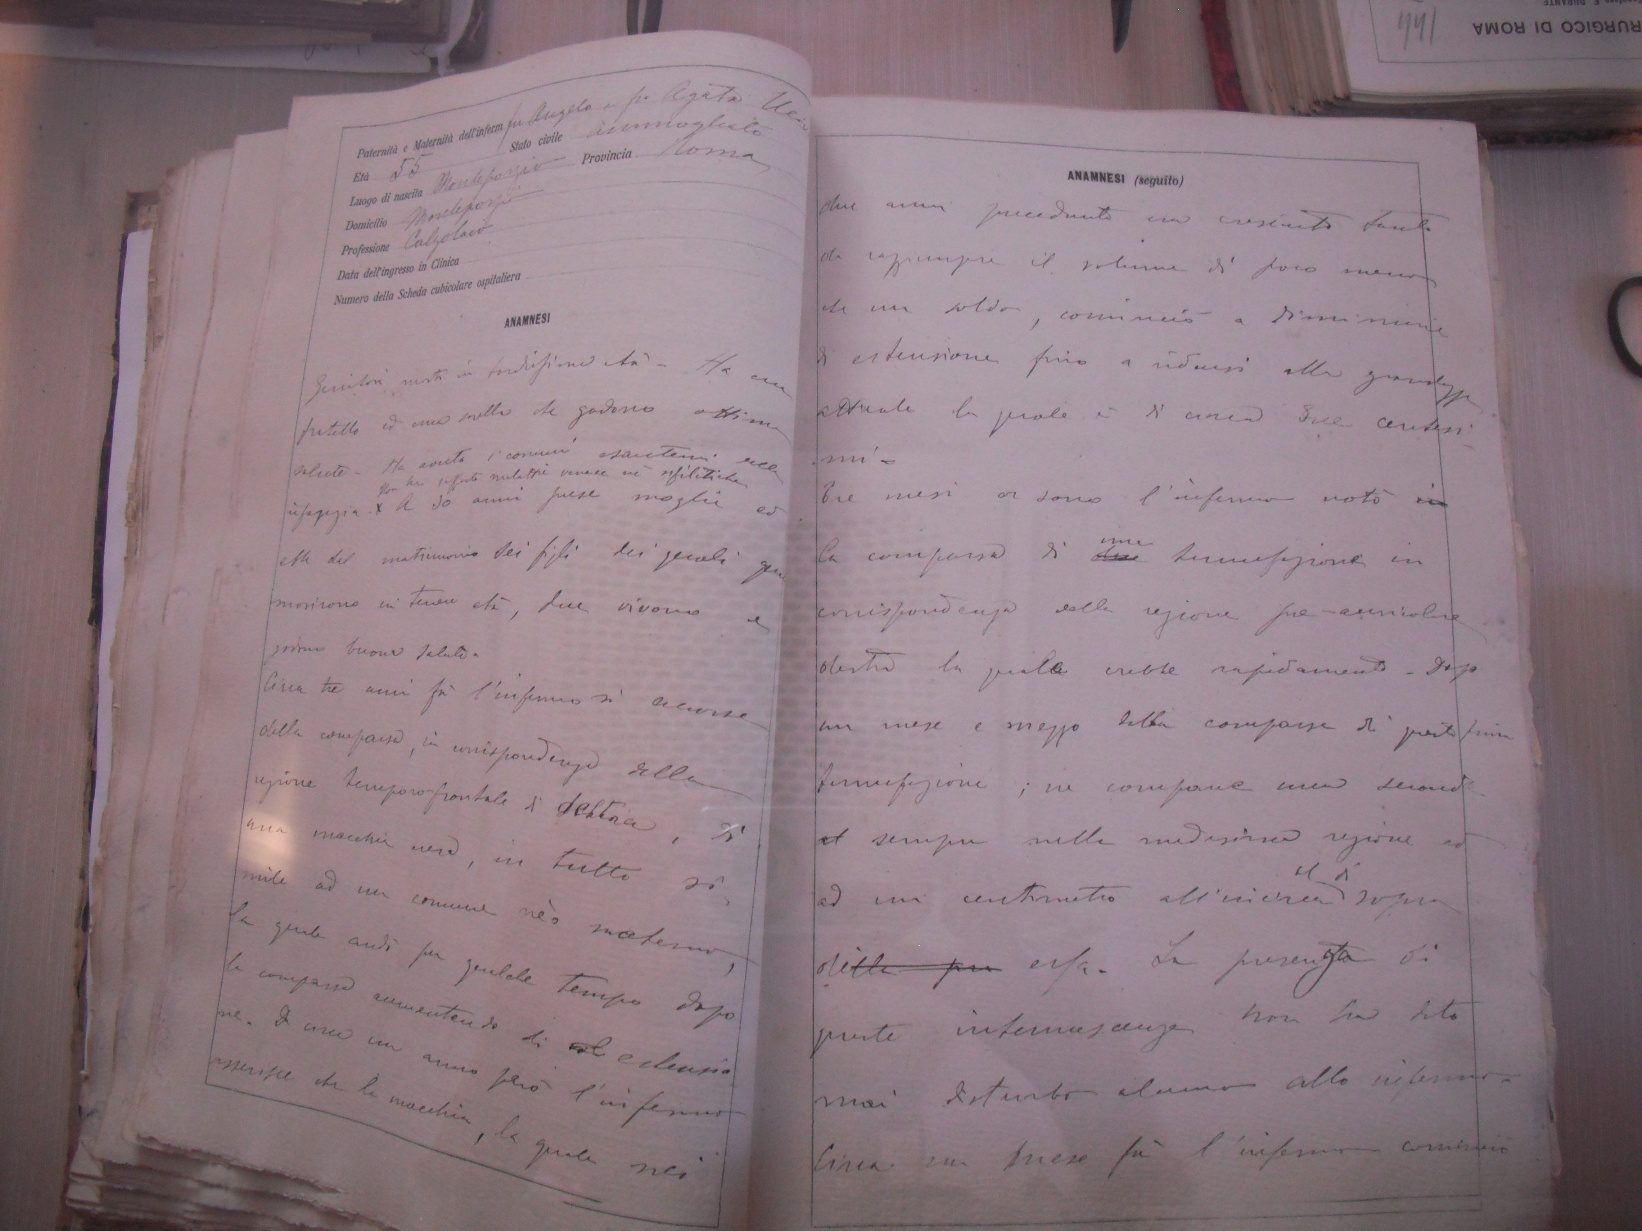 RURGICO DI ROMA
Paternità e Maternità dell'inferm fu Angelo e fu Agata
Età 55 Stato civile ammogliato
Luogo di nascita Monteporzio Provincia Roma
Domicilio Monteporzio
Professione Calzolaio
Data dell'ingresso in Clinica
Numero della Scheda cubicolare ospitaliera
ANAMNESI
Genitori morti in età - Ha un
fratello ed una sorella che godono ottima
salute - Ha avuto i comuni esantemi della
Non ha sofferto malattie veneree nè sifilitiche
infanzia. x A 30 anni prese moglie ed
ebbe dal matrimonio sei figli dei quali
morirono in tenera età, due vivono e
godono buona salute.
Circa tre anni fà l'infermo si accorse
della comparsa, in corrispondenza della
regione temporo-frontale di destra, di
una macchia nera, in tutto si
mile ad un comune nèo materno,
la quale andò per qualche tempo dopo
la comparsa aumentando di estensio
ne. Da circa un anno però l'infermo
asserisce che la macchia, la quale nei
ANAMNESI (seguito)
due anni precedenti era cresciuta tanto
da raggiungere il volume di poco meno
che un soldo, cominciò a diminuire
di estensione fino a ridursi alla grandezza
attuale la quale è di circa due centesi
mi -
Tre mesi or sono l'infermo notò
la comparsa di una tumefazione in
corrispondenza della regione pre-auricolare
destra la quale crebbe rapidamente - Dopo
un mese e mezzo dalla comparsa di questa prima
tumefazione; ne comparve una seconda
sempre nella medesima regione ed
ad un centimetro all'incirca al di sopra
della pre essa. La presenza di
queste intumescenze non ha dato
mai disturbo alcuno allo infermo -
Circa un mese fà l'infermo cominciò